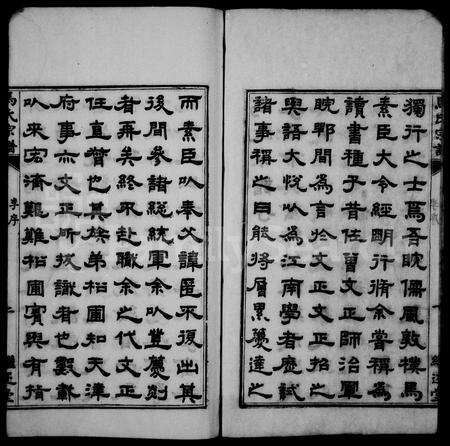 獨行之士爲吾皖儒風敦樸焉
素臣大令經明行脩余嘗稱為
讀書種子昔佐曾文正師治軍
皖鄂間為言於文正文正招之
與語大悅以為江南學者歷試
諸事稱之曰能將層累薦達之
而素臣以奉父諱匿不復出其
後間參諸總統軍余以登薦剡
者再矣終不赴職余之代文正
任直督也其族弟松圃知天津
府事亦文正所拔識者也數載
以來宏濟艱難松圃實與有指
氏宗譜
序